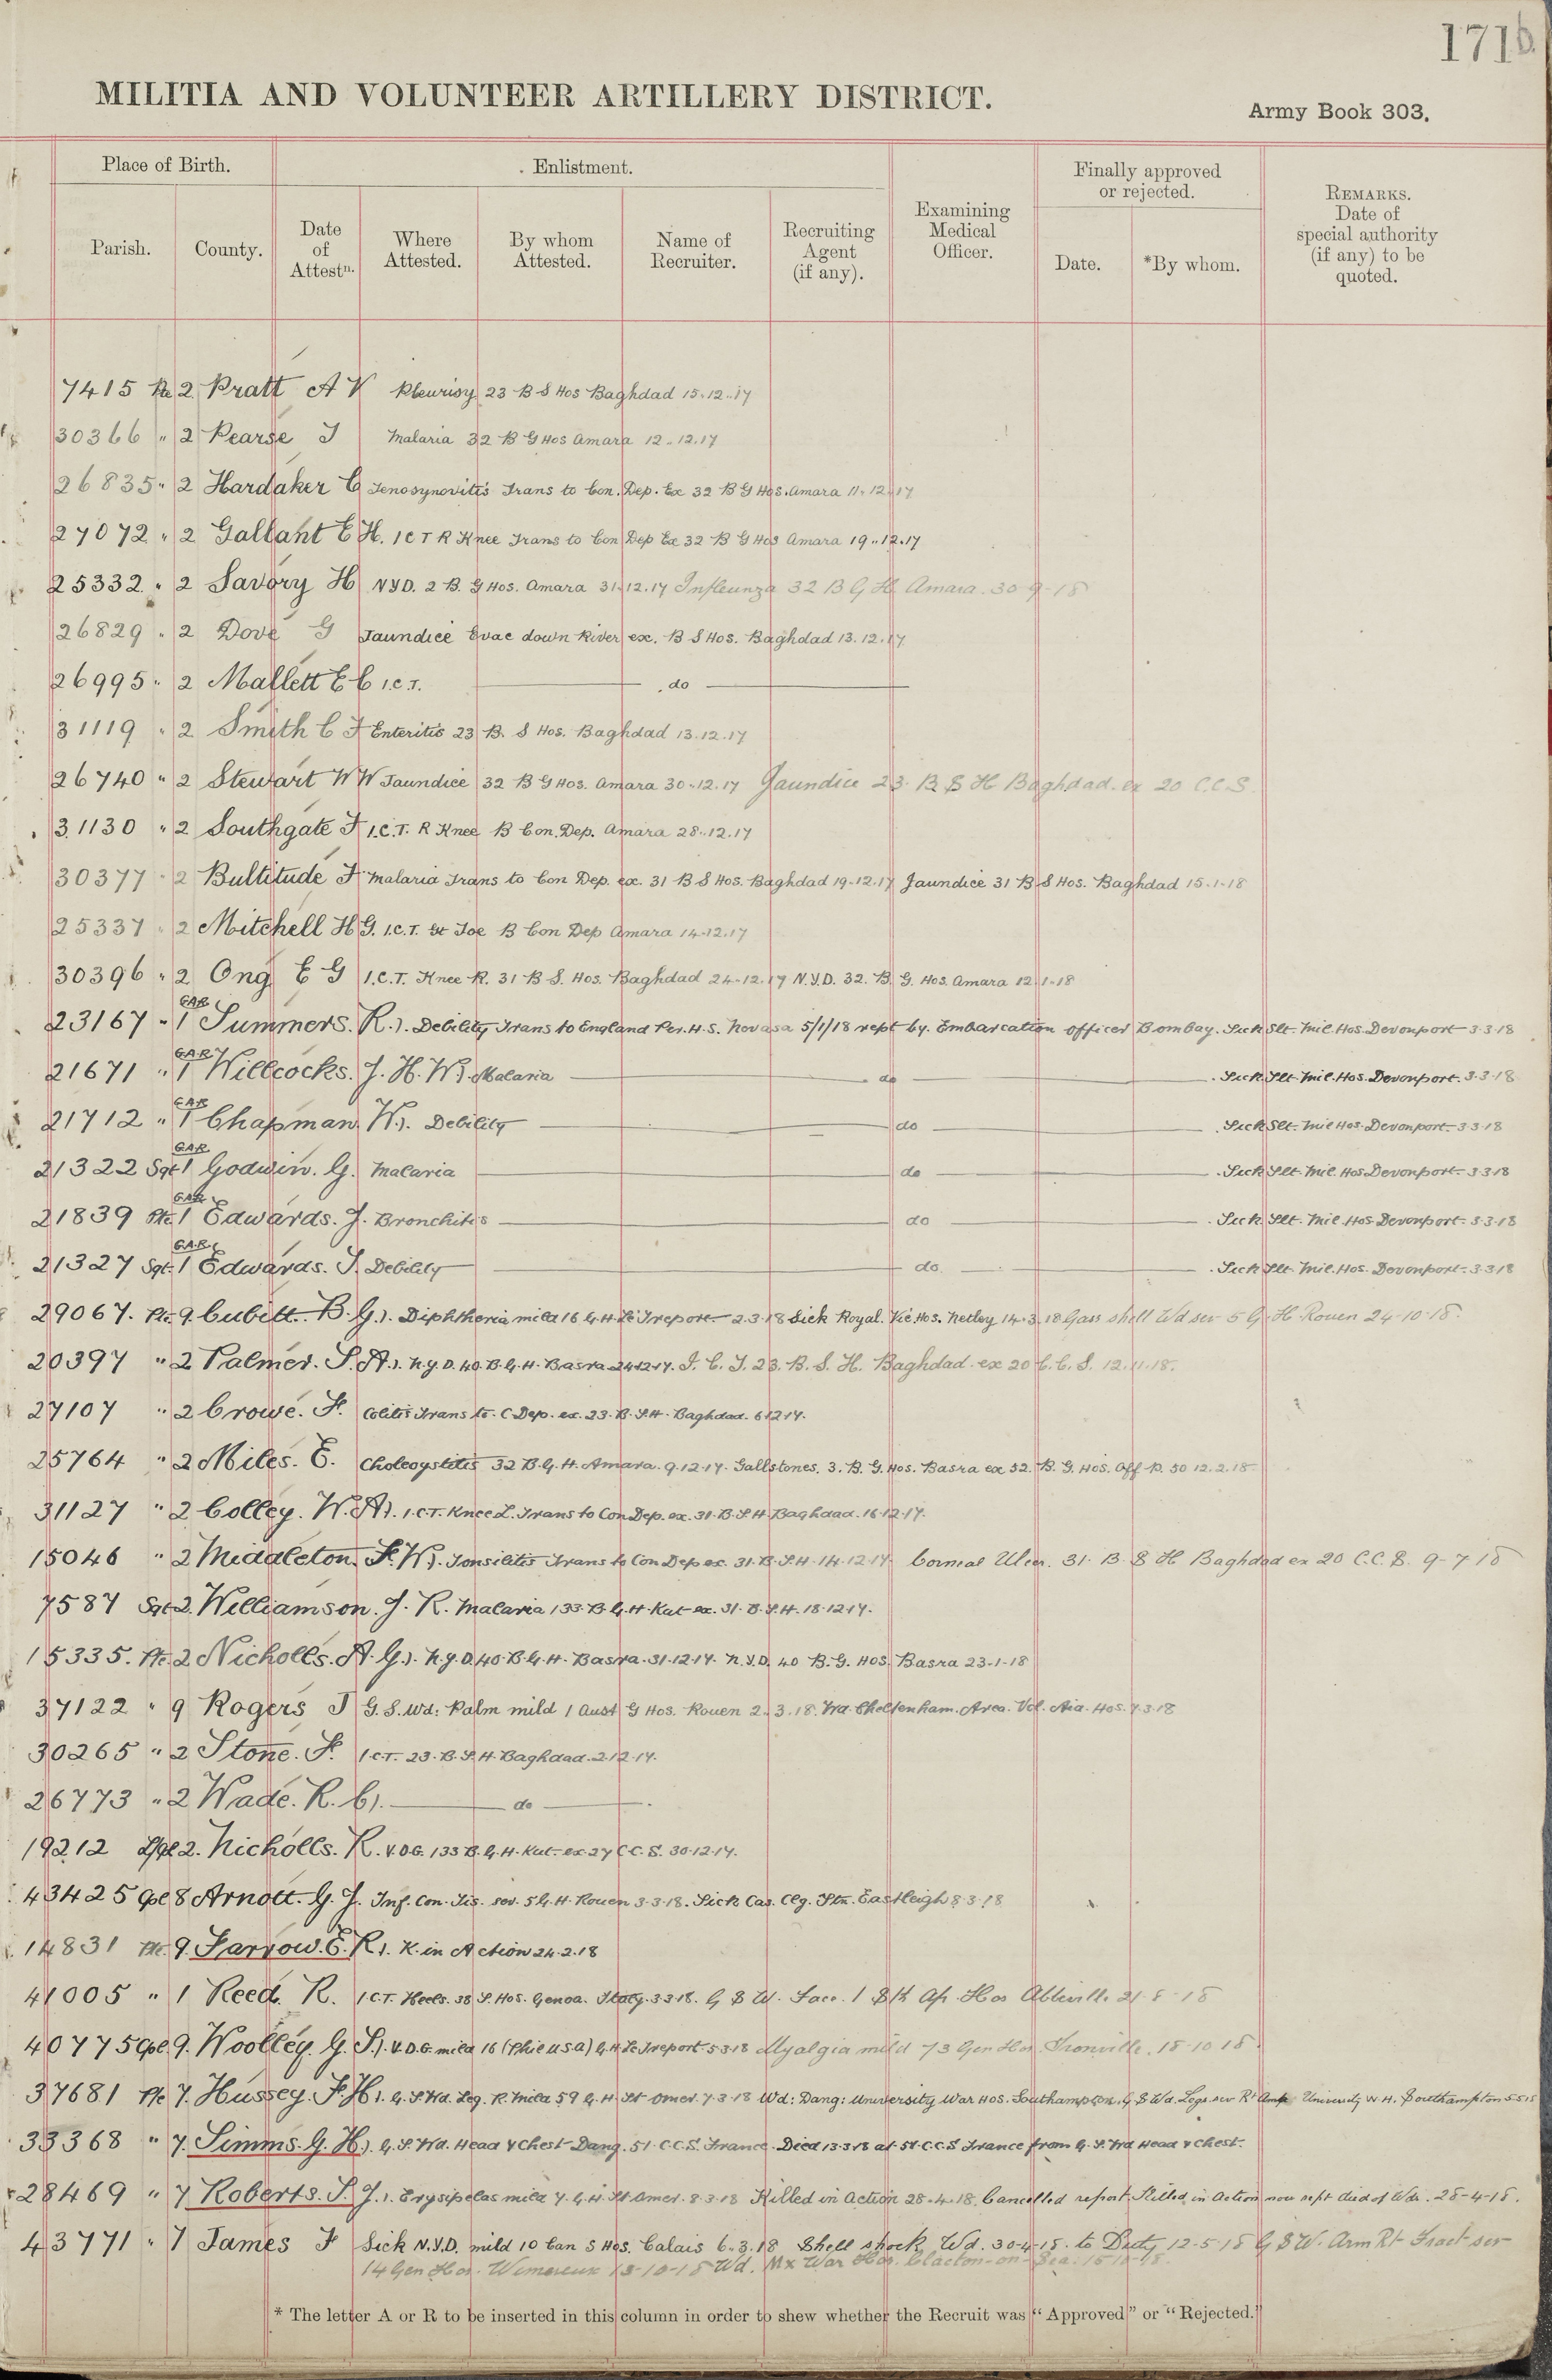 171b
MILITIA AND VOLUNTEER ARTILLERY DISTRICT.
Army Book 303.
Place of Birth.
Enlistment.
Finally approved or rejected.
Parish.
County.
Date of Attestn.
Where Attested.
By whom Attested.
Name of Recruiter.
Recruiting Agent (if any).
Examining Medical Officer.
Date.
*By whom.
REMARKS. Date of special authority (if any) to be quoted.
7415 Pte 2 Pratt A V Pleurisy 23 B S Hos Baghdad 15.12.17
30366 " 2 Pearse J Malaria 32 B G Hos Amara 12.12.17
26835 " 2 Hardaker C Tenosynovitis Trans to Con. Dep. Ex 32 B G Hos. Amara 11.12.17
27072 " 2 Gallant E H. I C T R Knee Trans to Con Dep Ex 32 B G Hos Amara 19.12.17
25332 " 2 Savory H N.Y.D. 2 B. G Hos. Amara 31.12.17 Infleunza 32 B G H. Amara. 30-9-18
26829 " 2 Dove G Jaundice Evac down River ex. B S Hos. Baghdad 13.12.17
26995 " 2 Mallett E C I.C.T. do
31119 " 2 Smith C F Enteritis 23 B. S Hos. Baghdad 13.12.17
26740 " 2 Stewart W W Jaundice 32 B G Hos. Amara 30.12.17 Jaundice 23. B S H Baghdad. ex 20 C.C.S.
31130 " 2 Southgate F I.C.T. R Knee B Con. Dep. Amara 28.12.17
30377 " 2 Bultitude F Malaria Trans to Con Dep. ex. 31 B S Hos. Baghdad 19.12.17 Jaundice 31 B S Hos. Baghdad 15.1.18
25337 " 2 Mitchell H G. I.C.T. Gt Toe B Con Dep Amara 14.12.17
30396 " 2 Ong E G I.C.T. Knee R. 31 B S. Hos. Baghdad 24.12.17 N.Y.D. 32. B. G. Hos. Amara 12.1.18
GAR
23167 " 1 Summers. R.). Debility Trans to England Per. H.S. Novasa 5/1/18 rept by. Embarcation officer Bombay. Sick Slt. Mil. Hos. Devonport 3.3.18
GAR
21671 " 1 Willcocks. J. H. W). Malaria do Sick Slt. Mil. Hos. Devonport. 3.3.18
GAR
21712 " 1 Chapman W.). Debility do Sick Slt. Mil Hos. Devonport. 3.3.18
GAR
21322 Sgt 1 Godwin. G. Malaria do Sick Slt. Mil. Hos Devonport. 3.3.18
GAR
21839 Pte 1 Edwards. J. Bronchitis do Sick Slt. Mil. Hos Devonport. 3.3.18
G.A.R.
21327 Sgt. 1 Edwards. J. Debility do Sick Slt. Mil. Hos. Devonport. 3.3.18
29067. Pte. 9. Cubitt. B. G.). Diphtheria mild 16 G. H. Le Treport. 2.3.18 Sick Royal. Vic Hos. Netley 14.3.18 Gass shell Wd sev 5 G. H. Rouen 24-10-18.
20397 " 2 Palmer. S. A.). N.Y.D. 40. B. G. H. Basra 24.12.17. I. C. T. 23. B. S. H. Baghdad. ex 20 C. C. S. 12.11.18.
27107 " 2 Crowe. F. Colitis Trans to. C Dep. ex. 23. B. S. H. Baghdad. 6.12.17.
25764 " 2 Miles. E. Cholecystitis 32 B. G. H. Amara. 9.12.17. Gallstones. 3. B. G. Hos. Basra ex 32. B. G. Hos. Off P. 50 12.2.18
31127 " 2 Colley. W. A). I.C.T. Knee L. Trans to Con Dep. ex. 31. B. S. H. Baghdad. 16.12.17.
15046 " 2 Middleton. F. W). Tonsilitis Trans to Con Dep ex. 31. B. S. H. 14.12.17 Corneal Ulcer. 31. B S H Baghdad ex 20 C.C.S. 9-7 18
7587 Sgt 2. Williamson. J. R. Malaria 133. B. G. H. Kut ex. 31. B. S. H. 18.12.17.
15335. Pte. 2 Nicholls. A. G.). N.Y.D. 40. B. G. H. Basra. 31.12.17. N.Y.D. 40 B. G. Hos. Basra 23.1.18
37122 " 9 Rogers J G. S. Wd: Palm mild 1 Aust G Hos. Rouen 2.3.18. Wd. Cheltenham. Area. Vol. Aid. Hos. 7.3.18
30265 " 2 Stone. F. I.C.T. 23. B. S. H. Baghdad. 2.12.17.
26773 " 2 Wade. R. C). do
19212 L/Sgt 2. Nicholls. R. V.D.G. 133 B. G. H. Kut. ex. 27 C. C. S. 30.12.17.
43425 Cpl 8 Arnott. G. J. Inf. Con. Tis. sev. 5 G. H. Rouen 3.3.18. Sick Cas. Clg. Stn. Eastleigh 8.3.18
14831 Pte. 9. Farrow. E. R). K. in Action 24.2.18
41005 " 1 Reed. R. I.C.T. Heels. 38 S. Hos. Genoa. Italy. 3.3.18. G S W. Face. 1 Sth Af. Hos Abbeville 21-8-18
40775 Cpl 9. Woolley. G. S.). V.D.G. mild 16 (Phil USA) G. H. Le Treport 5.3.18 Myalgia mild 73 Gen Hos Trouville. 18-10-18.
37681 Pte 7. Hussey. F. H). G. S. Wd. Leg. R. Mild 59 G. H. St Omer. 7.3.18 Wd: Dang: University War Hos. Southampton. G S Wd. Legs. sev Rt Amp University W H. Southampton 5.5.18
33368 " 7. Simms. G. H.). G. S. Wd. Head & Chest Dang. 51. C.C.S. France. Died 13.3.18 at 51 C.C.S. France from G. S. Wd Head & Chest.
28469 " 7 Roberts. S. J.). Erysipelas mild 7. G. H. St Omer. 8.3.18 Killed in Action 28.4.18. Cancelled report Killed in Action now rept died of Wds. 28-4-18.
43771 " 7 James F Sick N.Y.D. mild 10 Can S Hos. Calais 6.3.18 Shell shock Wd. 30-4-18. to Duty 12-5-18 G S W. Arm Rt Fract sev
14 Gen Hos. Wimereux 13-10-18 Wd. Mx War Hos. Clacton-on-Sea. 15.10.18.
* The letter A or R to be inserted in this column in order to shew whether the Recruit was "Approved" or "Rejected."